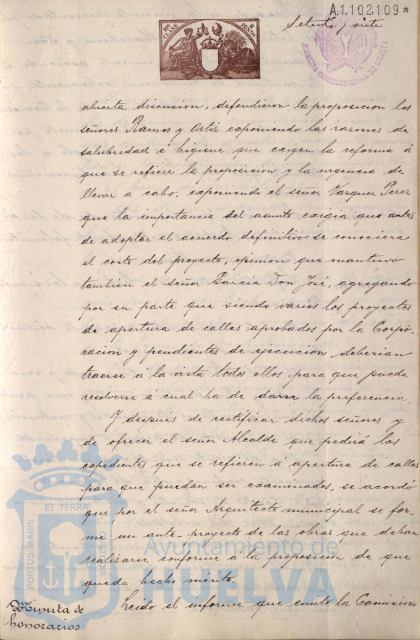 A.1.102.109*
Setenta y siete
abierta discusion, defendieron la proposicion los
señores Ramos y Ortíz exponiendo las razones de
salubridad é higiene que exigen la reforma á
que se refiere la proposicion y la urgencia de
llevar a cabo, exponiendo el señor Vazquez Perez
que la importancia del asunto exigia que antes
de adoptar el acuerdo definitivo se conociera
el costo del proyecto, opinion que mantuvo
tambien el señor Garcia Don José, agregando
por su parte que siendo varios los proyectos
de apertura de calles aprobados por la Corpo-
racion y pendientes de ejecucion, deberian
traerse á la vista todos ellos para que pueda
resolverse á cual ha de darse la preferencia.
Y despues de rectificar dichos señores y
de ofrecer el señor Alcalde que pedirá los
expedientes que se refieren á apertura de calles
para que puedan ser examinados, se acordó
que por el señor Arquitecto municipal se for-
me un ante-proyecto de las obras que deban
realizarse conforme á la proposicion de que
queda hecho mérito.
Minuta de
honorarios
Leido el informe que emite la Comision
PORTUS MARIS
ET TERRAE
Ayuntamiento de
HUELVA